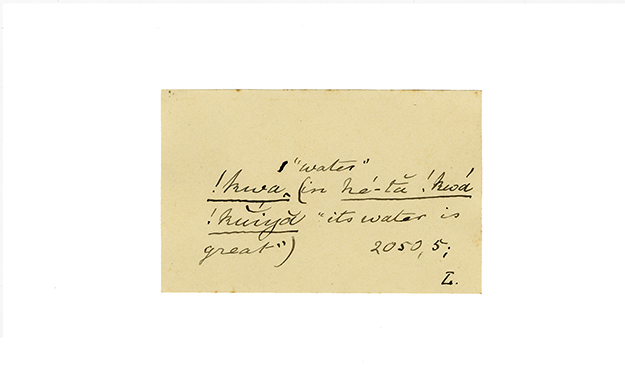 "water"
!kwa, (in há-tă !kwá
!kŭíyă "its water is
great") 2050, 5;
L.